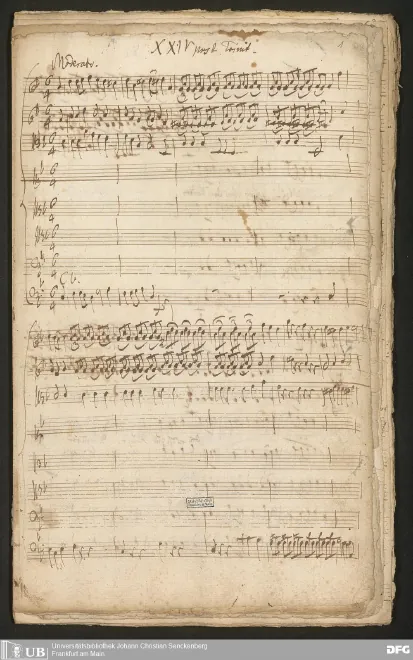 XXIV post Trinit.
1
Moderato.
Cb.
UB
Universitätsbibliothek Johann Christian Senckenberg
Frankfurt am Main
DFG